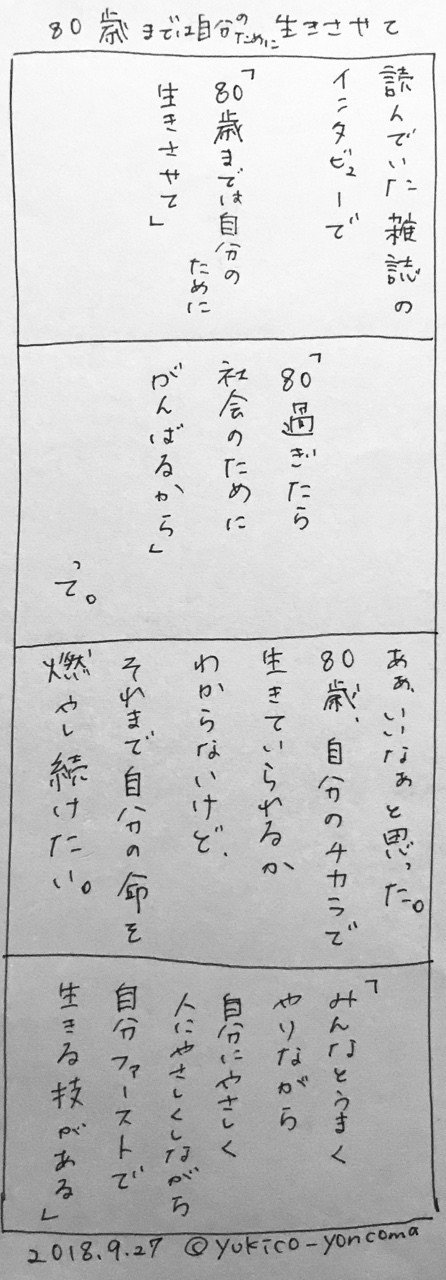 80歳までは自分のために生きさせて
読んでいた雑誌の
インタビューで
「80歳までは自分の
ために
生きさせて」
「80過ぎたら
社会のために
がんばるから」
って。
ああ、いいなぁと思った。
80歳、自分のチカラで
生きていられるか
わからないけど、
それまで自分の命を
燃やし続けたい。
「みんなとうまく
やりながら
自分にやさしく
人にやさしくしながら
自分ファーストで
生きる技がある」
2018.9.27 ©yukico-yoncoma